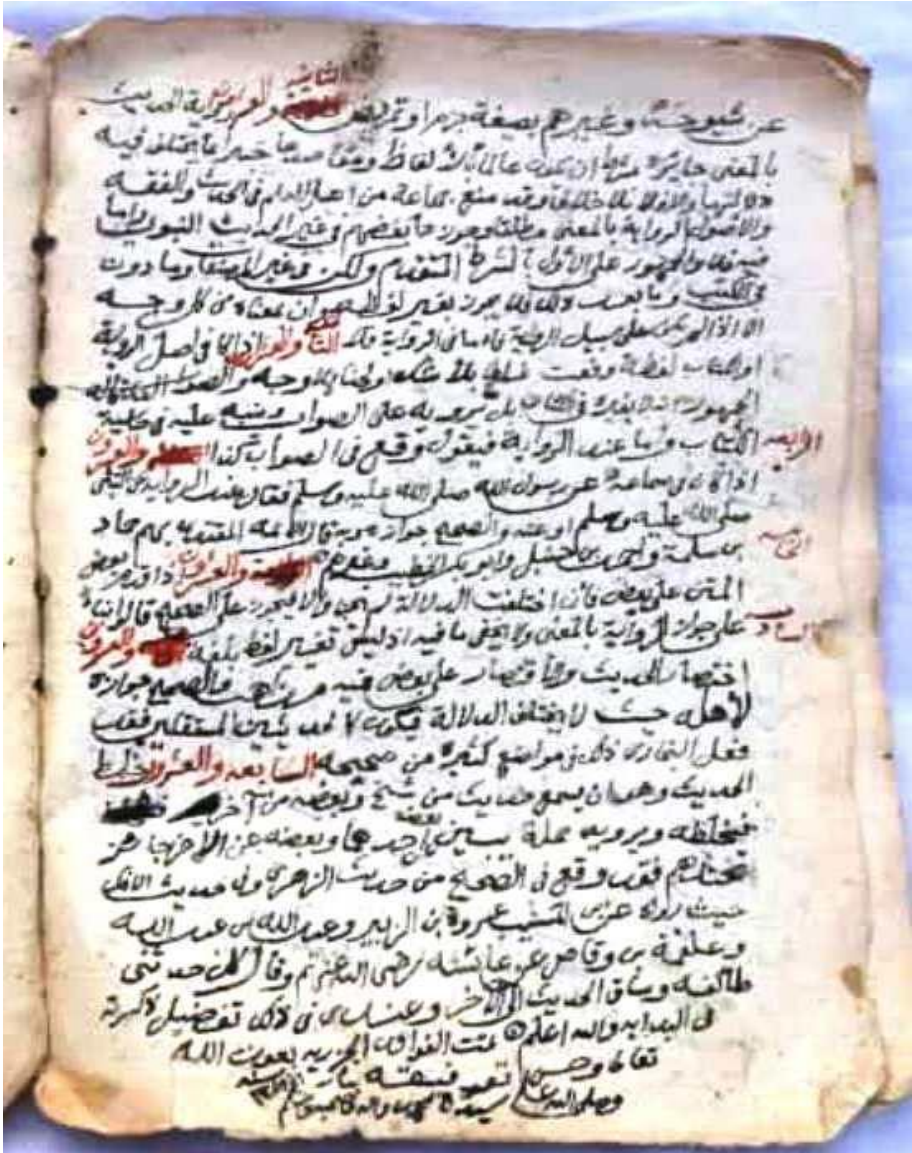 الثانية
عن شيوخنا وغيرهم بصيغة جزم او تمريض والعشرون رواية الحديث
بالمعنى جايزة شرط ان يكون عالما بالالفاظ ومقاصدها خبيرا بما يختلف فيه
دلالتها والا فلا بلا خلاف وقد منع جماعة من اهل العلم في الحديث والفقه
والاصول الرواية بالمعنى مطلقا وجوزها بعضهم في غير الحديث النبوي واما
فيه فلا والجمهور على الاول بالشرط المتقدم ولكن في غير المصنفات وما دون
في الكتب وما بعد ذلك فلا يجوز تغيير لفظ وان بمعناه من كل وجه
على سبيل الرواية الثالثة والعشرون اذا كان في اصل الرواية
او الكتاب لفظة وقعت غلطا بلا شك والصواب
الجمهور انه لا يغيره في الكتاب بل يرويه على الصواب وينبه عليه في حاشية
الرابعه الكتاب واما عند الرواية فيقول وقع في الصواب كذا والعشرون
اذا كان في سماعه عن رسول الله صلى الله عليه وسلم فقال عند الرواية عن النبي
صلى الله عليه وسلم او عنه والصحيح جوازه وبه قال الائمة المقتدى بهم حماد
الخامسه بن سلمة واحمد بن حنبل وابو بكر الخطيب وغيرهم والعشرون اذا قدم بعض
المتن على بعض فان اختلفت الدلالة لم يجز والا فيجوز على الصحيح قالوا بناء
السادسه على جواز الرواية بالمعنى ولا يخفى ما فيه اذ ليس تغيير لفظ بلفظ والعشرون
اختصار الحديث والاقتصار على بعض فيه مذاهب والصحيح جوازه
لاهله حيث لا يختلف الدلالة فيكون كالحديثين المستقلين فقد
فعل البخاري ذلك في مواضع كثيرة من صحيحه السابعه والعشرون خلط
الحديث وهو ان يسمع حديث من شيخ وبعضه من آخر
فيخلطه ويرويه جملة يبين ان بعضه عن احدهما وبعضه عن الآخر جائز
فقد وقع في الصحيح من حديث الزهري في حديث الافك
حيث رواه عن بن المسيب وعروة بن الزبير وعبد الله بن عبد الله
وعلقمة بن وقاص عن عائشه رضي الله عنهم وقال كل حدثني
طائفه وساق الحديث الى آخره وعندي في ذلك تفصيل ذكرته
في البدايه والله اعلم تمت الفوائد الجزريه بعون الله
تعالى وحسن توفيقه
وصلى الله على سيدنا محمد واله وصحبه وسلم